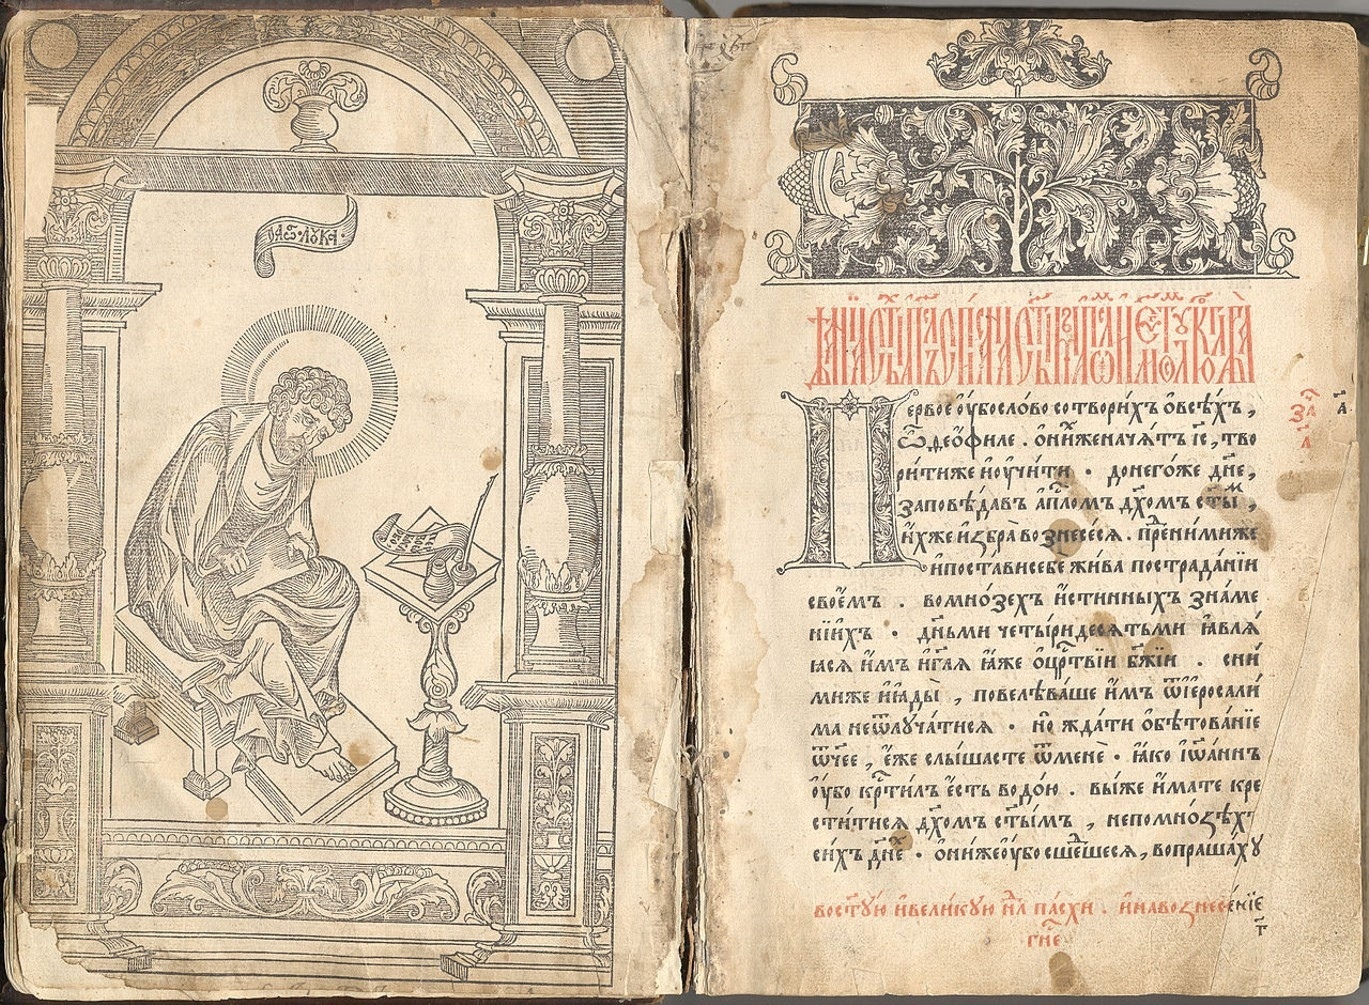 ѻ҆а҆гі́ѡсъ лꙋка̀
первое ᲂу҆бо сло́во сотвори́хъ ѻ҆ всѣ́хъ,
ѽ ѳео́филе. ѡ҆ ни́хже начѧ́тъ і҆с҃, тво
ри́тиже и҆ᲂу҆чи́ти. донего́же дн҃е,
заповѣ́давъ а҆пⷭ҇ломъ дх҃омъ ст҃ы́мъ,
и҆́хже и҆ꙁбра̀ воꙁнесе́сѧ. пред̾ни́миже
и҆поста́ви себѐ жи́ва пострада́нїи
свое́мъ. вомно́зехъ и҆́стинныхъ зна́ме
нїихъ. дн҃ьми четы́ридесѧтьми ꙗ҆влѧ́
ꙗсѧ и҆̀мъ и҆гл҃ѧ ꙗ҆́же ѻ҆цр҃твїи бж҃їи. сни́
миже и҆ꙗ҆ды̀, повелѣва́ше и҆̀мъ ѿі҆еросали́
ма неѿлꙋча́тисѧ. но̀ жда́ти ѻ҆бѣтова́нїе
ѿч҃ее, є҆́же слы́шасте ѿменѐ. ꙗ҆́ко і҆ѡа́ннъ
ᲂу҆́бо кр҃тилъ є҆́сть водо́ю. вы́же и҆́мате кре
сти́тисѧ дх҃омъ ст҃ы́мъ, непомно́ꙁѣхъ
си́хъ дн҃ехъ. ѻ҆ни́же ᲂу҆̀бо сше́дшесѧ, вопраша́хꙋ
вост҃ꙋ́ю и҆вели́кꙋю нл҃ѧ па́схи. и҆наво́ꙁнесе́нїе
гн҃е